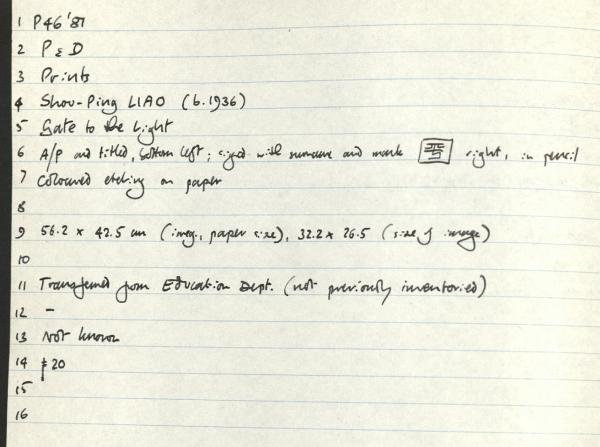 1 P46 '87
2 P & D
3 Prints
4 Shou-Ping LIAO (b. 1936)
5 Gate to the Light
6 A/P and titled, bottom left; signed with surname and mark right, in pencil
7 Coloured etching on paper
8
9 56.2 x 42.5 cm (irreg., paper size), 32.2 x 26.5 (size of image)
10
11 Transferred from Education Dept. (not previously inventoried)
12 –
13 Not known
14 20
15
16